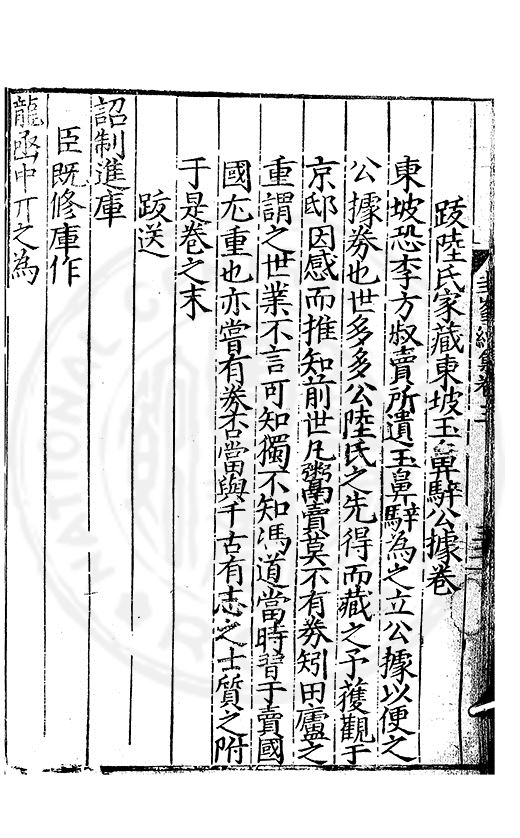 跋陸氏家藏東坡玉鼻騂公據卷
東坡恐李方叔賣所遺玉鼻騂為之立公據以便之
公據券也世多多公陸氏之先得而藏之予獲觀于
京邸因感而推知前世凡鬻賣莫不有券矧田廬之
重謂之世業不言可知獨不知馮道當時習于賣國
國尤重也亦嘗有券否當與千古有志之士質之附
于是卷之末
跋送
詔制進庫
臣既修庫作
龍函中丌之為